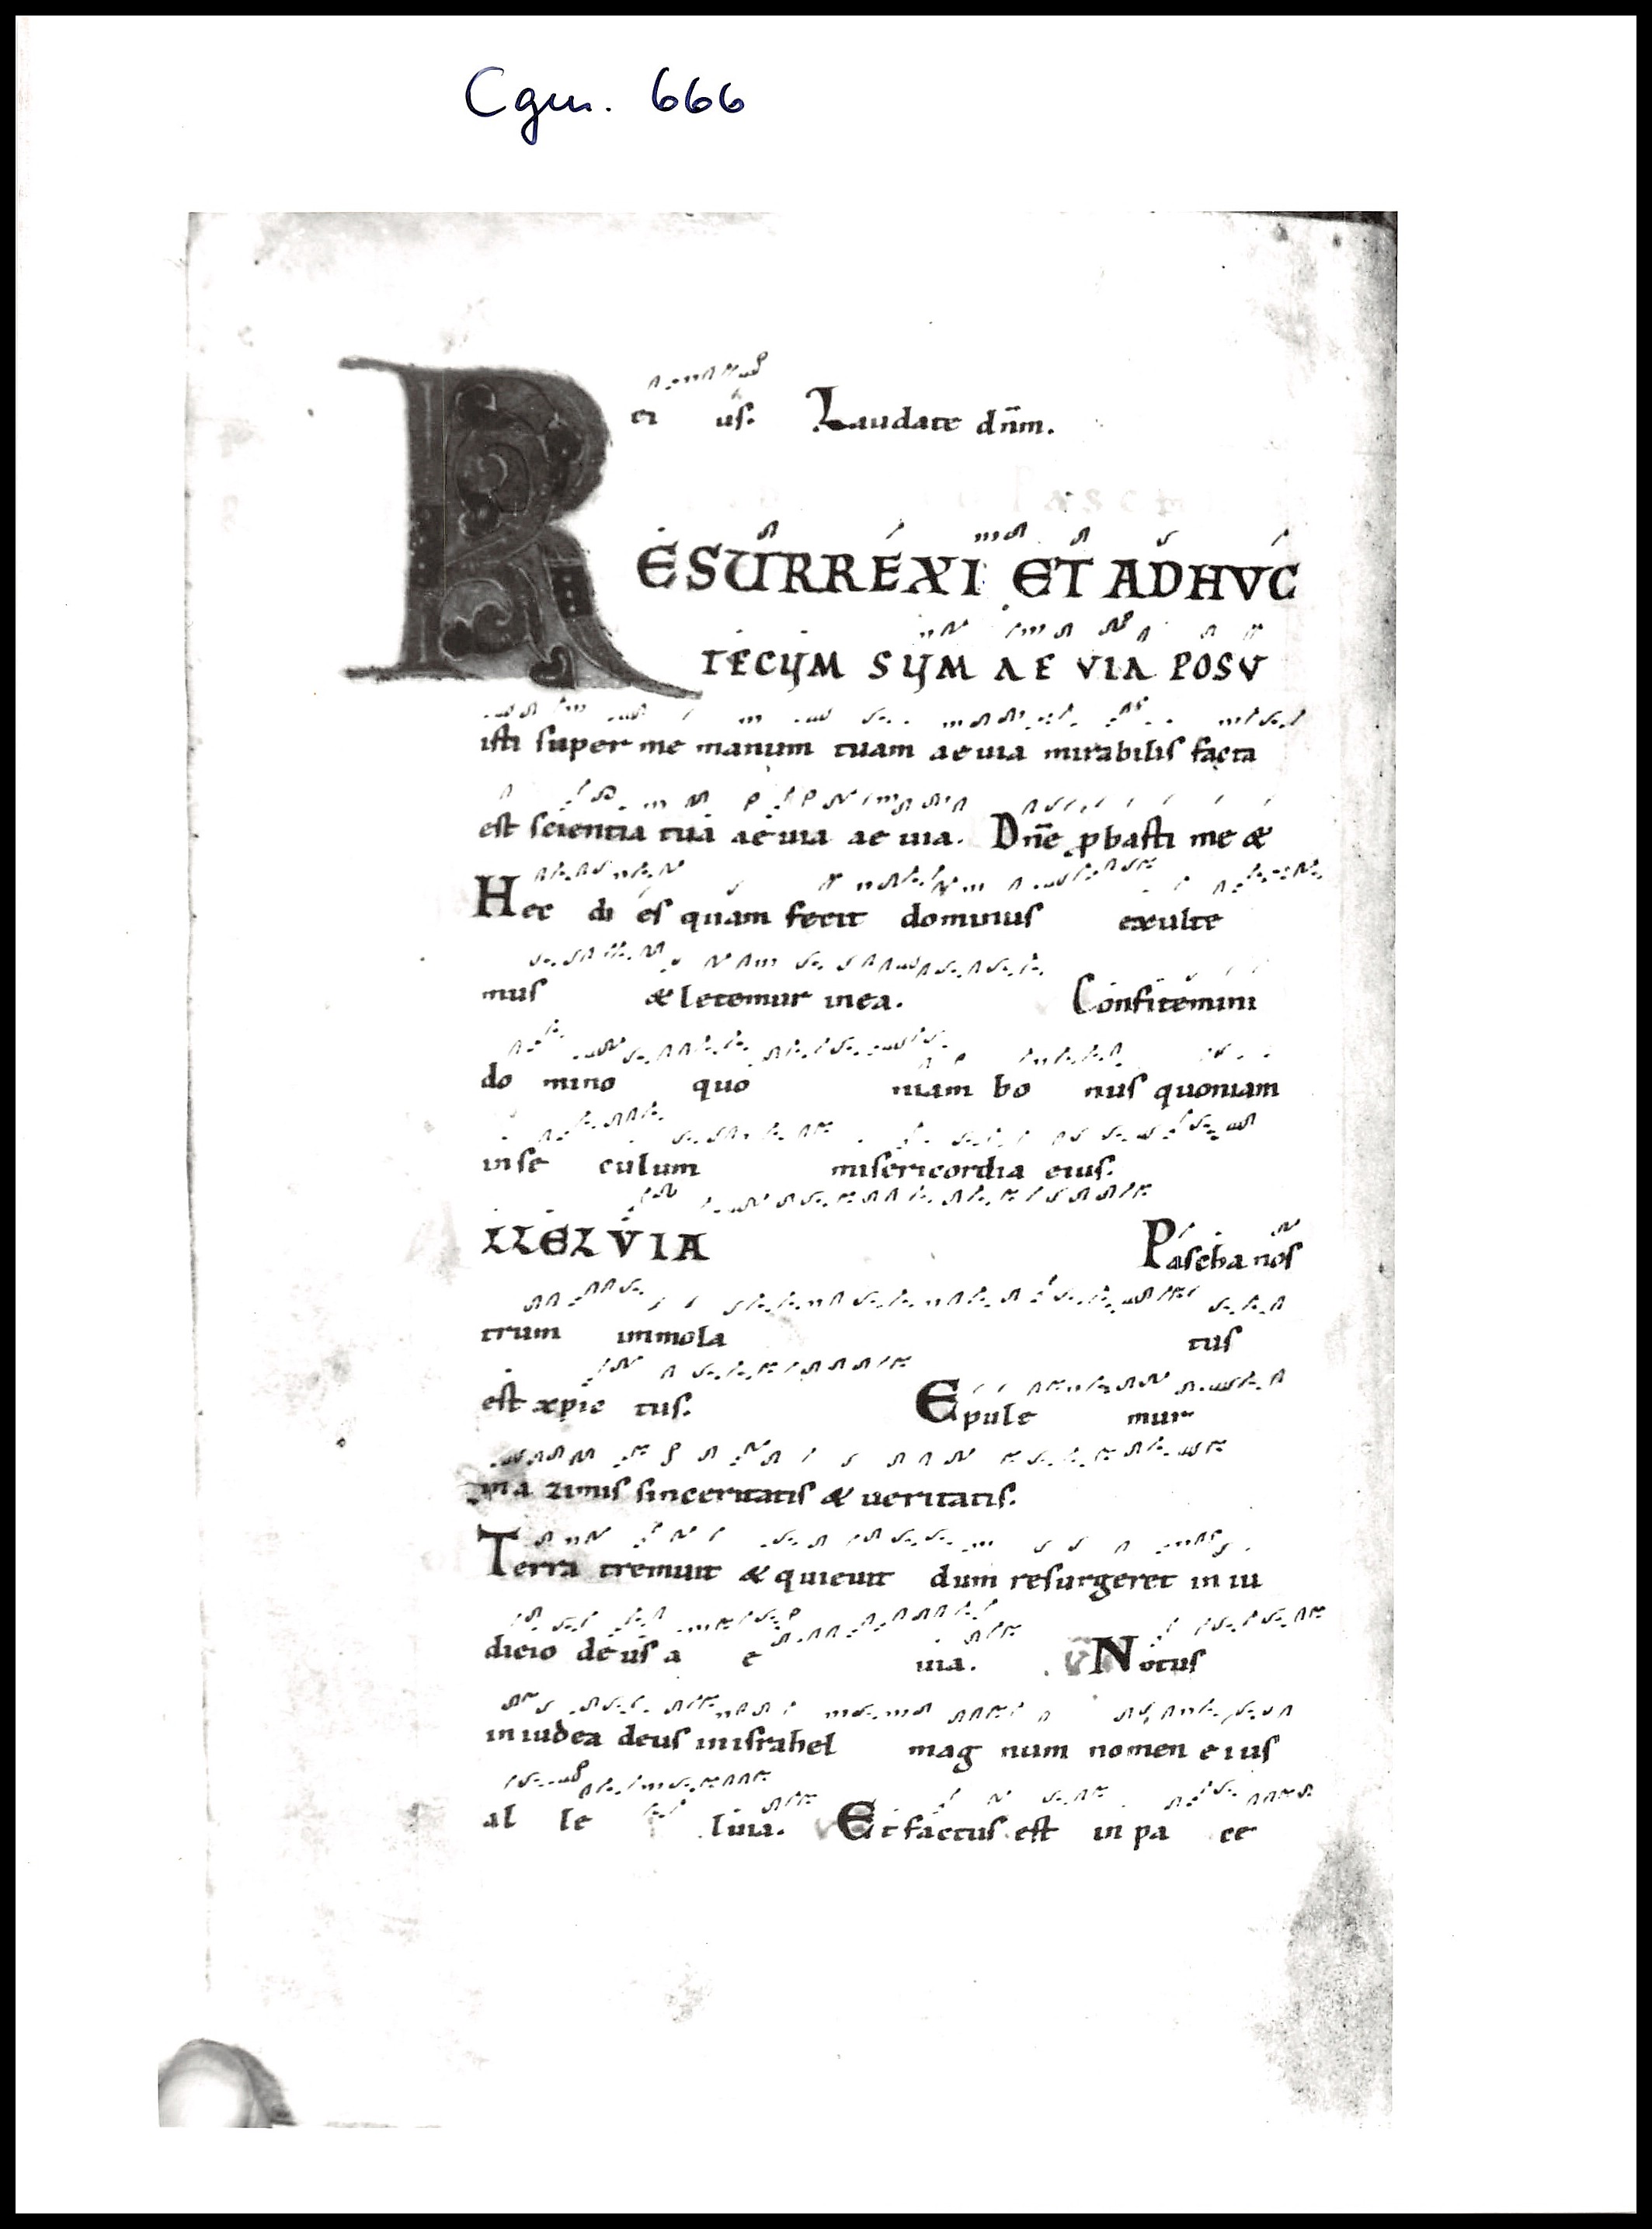 Cgm. 666
ei us. Laudate dn̄m.
RESURREXI ET ADHVC
TECUM SUM AE VIA POSV
isti super me manum tuam ae uia mirabilis facta
est scientia tua ae uia ae uia. Dn̄e ꝓbasti me &
Hec di es quam fecit dominus exulte
mus & letemur inea. Confitemini
do mino quo niam bo nus quoniam
inse culum misericordia eius.
LLELVIA Pascha nos
trum immola tus
est xpic tus. Epule mur
ina zimis sinceritatis & ueritatis.
Terra tremuit & quieuit dum resurgeret in iu
dicio deus a e uia. V Notus
in iudea deus inisrahel mag num nomen eius
al le luia. V Et factus est in pa ce